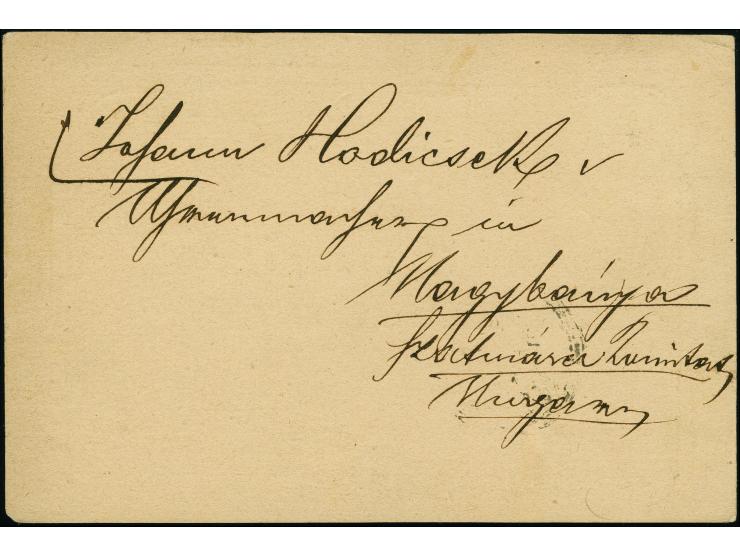 Johann Hodicsek
Uhrenmacher in
Nagybánya
Szatmárer Komitat
Ungarn